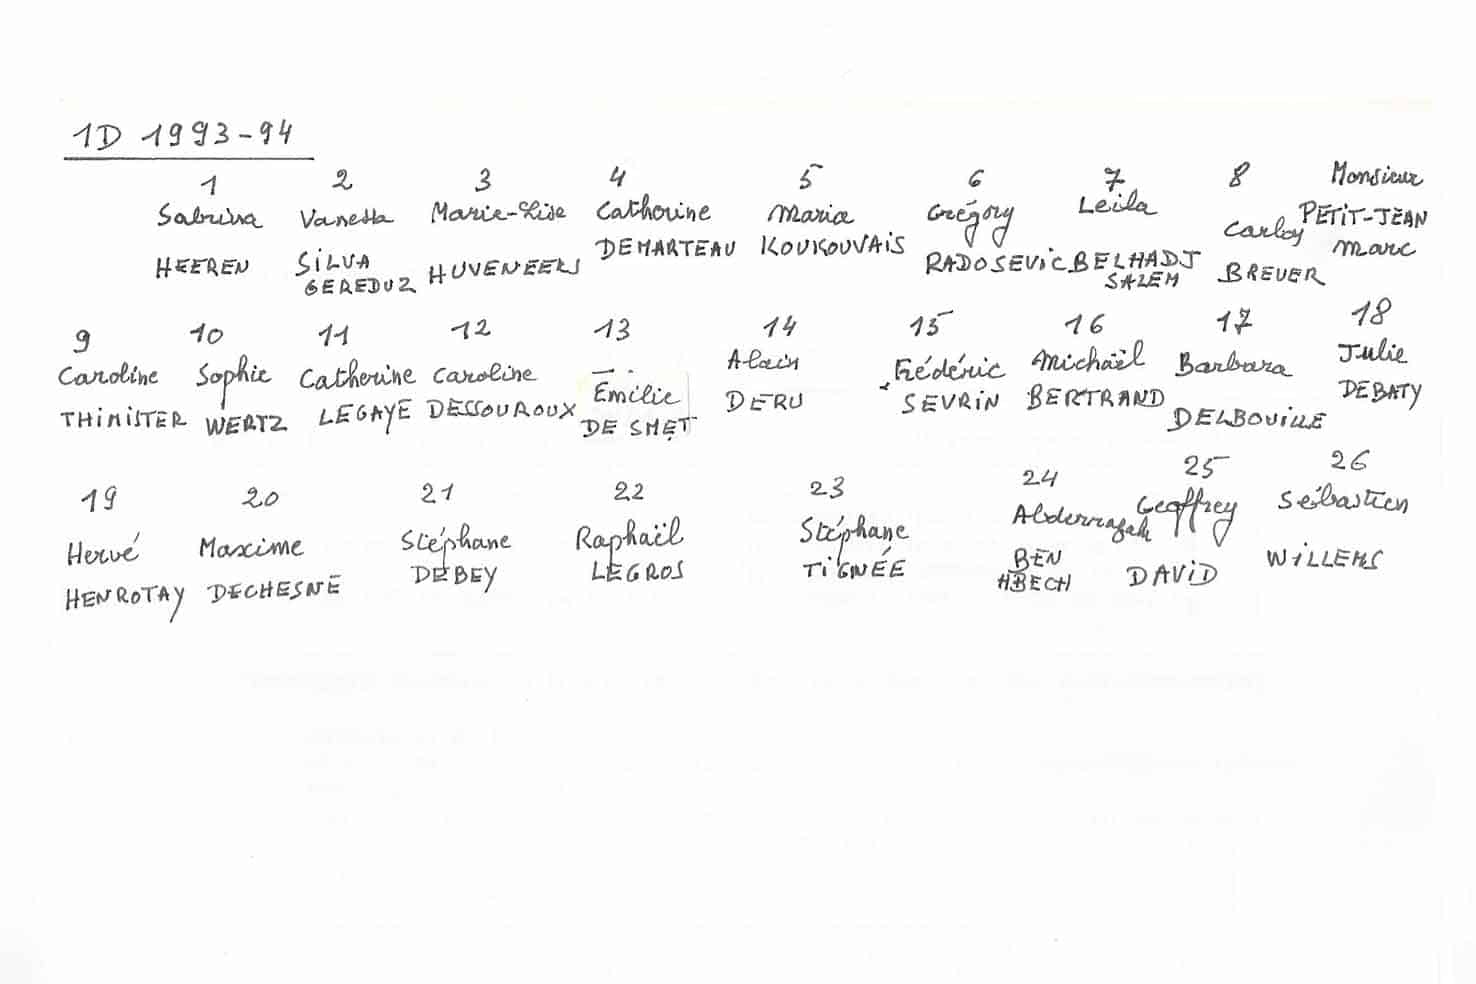 1D 1993-94
1 2 3 4 5 6 7 8 Monsieur
Sabrina Vanessa Marie-Lise Catherine Maria Grégory Leila Carlos PETIT-JEAN
HEEREN SILVA HUVENEERS DEMARTEAU KOUKOUVAIS RADOSEVIC BELHADJ BREUER Marc
GEREDUZ SALEM
9 10 11 12 13 14 15 16 17 18
Caroline Sophie Catherine Caroline Emilie Alain Frédéric Michaël Barbara Julie
THIMISTER WERTZ LEGAYE DESSOUROUX DE SMET DERU SEVRIN BERTRAND DELBOUILLE DEBATY
19 20 21 22 23 24 25 26
Hervé Maxime Stéphane Raphaël Stéphane Abderrazak Geoffrey Sébastien
HENROTAY DECHESNE DEBEY LEGROS TIGNÉE BEN DAVID WILLEMS
HBECH